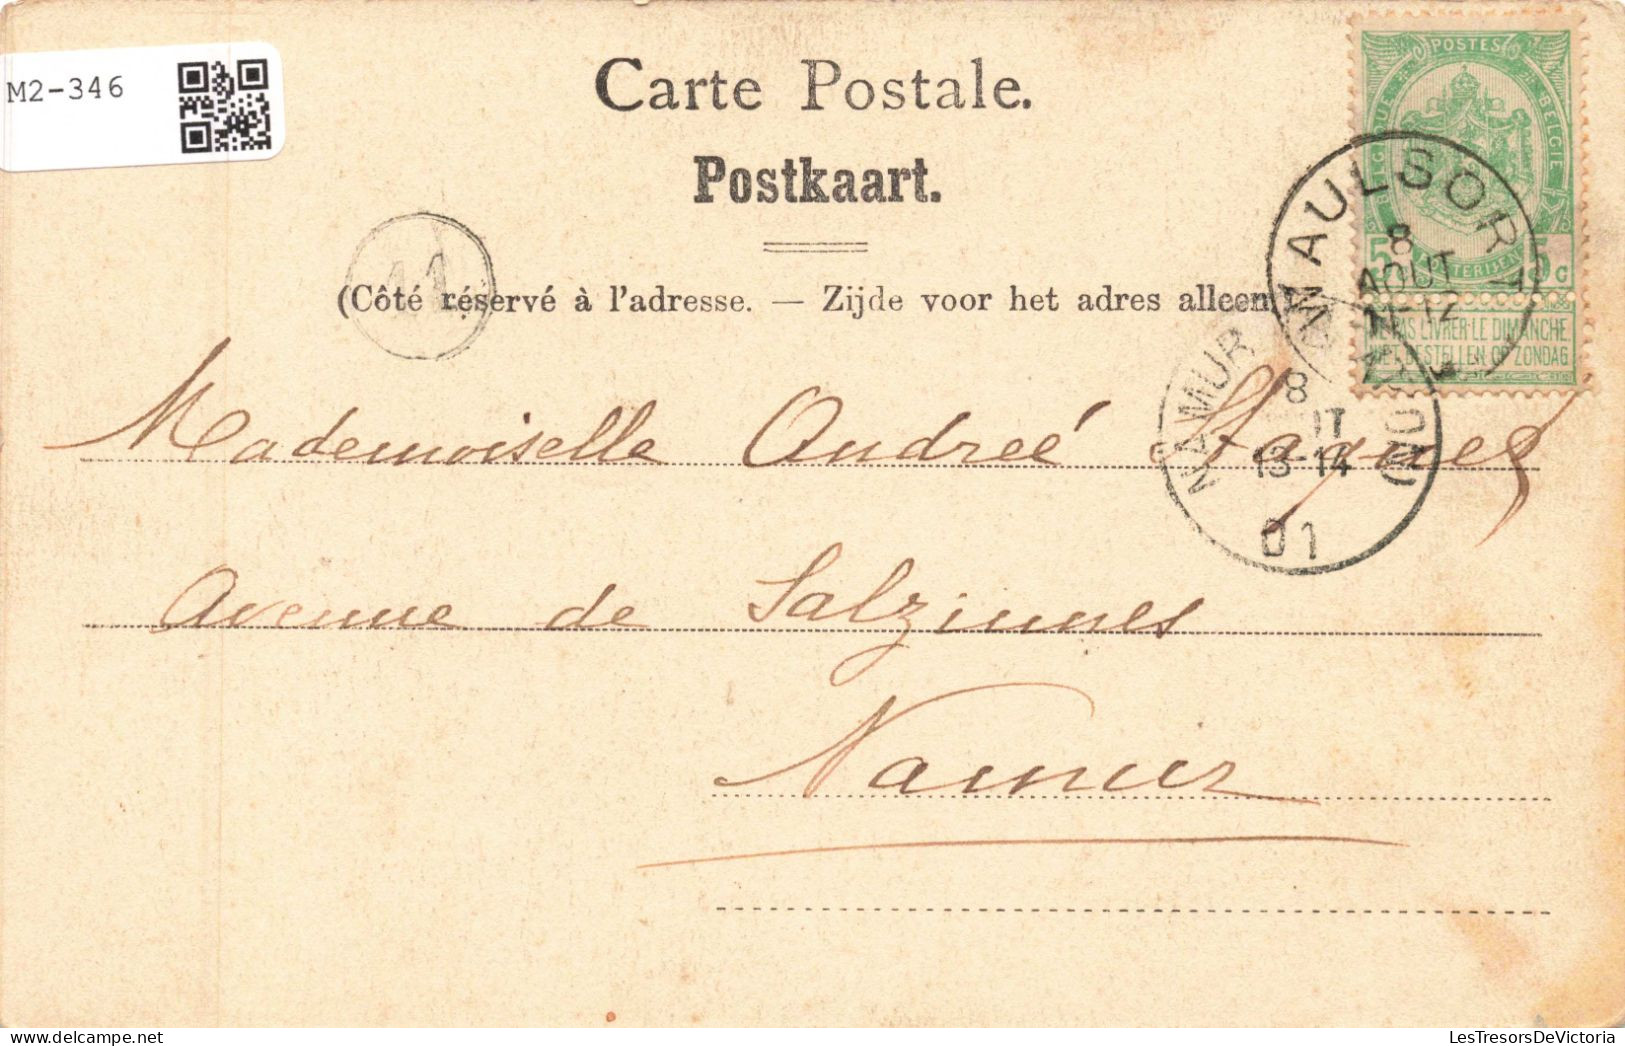 M2-346
Carte Postale.
Postkaart.
(Côté réservé à l'adresse. — Zijde voor het adres alleen)
11
POSTES
BELGIQUE BELGIE
POSTERIJEN
5 5c
NE PAS LIVRER LE DIMANCHE
NIET BESTELLEN OP ZONDAG
WAULSORT
8
AOUT
11-12
NAMUR
8
13-14
01
Mademoiselle Andreé
Avenue de Salzinnes
Namur
LesTresorsDeVictoria